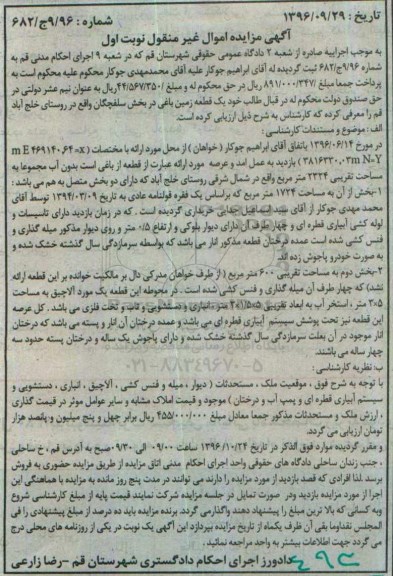 تاریخ : ۱۳۹۶/۰۹/۲۹ شماره : ۹/۹۶ج/۶۸۲
آگهی مزایده اموال غیر منقول نوبت اول
به موجب اجراییه صادره از شعبه ۲ دادگاه عمومی حقوقی شهرستان قم که در شعبه ۹ اجرای احکام مدنی قم به
شماره ۹/۹۶ج/۶۸۲ ثبت گردیده له آقای ابراهیم جوکار علیه آقای محمدمهدی جوکار محکوم علیه محکوم است به
پرداخت جمعا مبلغ ۸۹۱/۰۰۰/۳۴۷ ریال در حق محکوم له و مبلغ ۴۴/۵۶۷/۳۵۰ ریال به عنوان نیم عشر دولتی در
حق صندوق دولت محکوم له در قبال طلب خود یک قطعه زمین باغی در بخش سلفچگان واقع در روستای خلج آباد
قم را معرفی کرده که کارشناس به شرح ذیل ارزیابی کرده است.
الف : موضوع و مستندات کارشناسی :
در مورخ ۱۳۹۶/۰۶/۱۴ باتفاق آقای ابراهیم جوکار ( خواهان ) از محل مورد ارائه با مختصات ( m E ۴۶۹۱۴۰.۶۴=x
m N=Y ۳۸۱۶۳۳۰.۰۳) بازدید به عمل آمد و عرصه مورد ارائه عبارت از قطعه از باغی است بدون آب مجموعا به
مساحت تقریبی ۲۳۲۴ متر مربع واقع در شمال شرقی روستای خلج آباد که دارای دو بخش متصل به هم می باشد :
۱-بخش از آن به مساحت ۱۷۲۴ متر مربع که براساس یک فقره قولنامه عادی به تاریخ ۱۳۹۴/۰۳/۰۹ توسط آقای
محمد مهدی جوکار از آقای سید اسماعیل خریداری گردیده است . که در زمان بازدید دارای تاسیسات و
لوله کشی آبیاری قطره ای و چهار طرف آن دارای دیوار بلوکی و ارتفاع ۰/۵ متر و روی دیوار مذکور میله گذاری و
فنس کشی شده است عمده درختان قطعه مذکور انار می باشد که بواسطه سرمازدگی سال گذشته خشک شده و
به صورت خودرو پاجوش زده اند.
۲-بخش دوم به مساحت تقریبی ۶۰۰ متر مربع ( از طرف خواهان مدرکی دال بر مالکیت خوانده بر این قطعه ارائه
نشد) که چهار طرف آن میله گذاری و فنس کشی شده است . در محوطه این قطعه یک مورد آلاچیق به مساحت
۳۰۵ متر ، استخر آب به ابعاد تقریبی متر ، انباری و دستشویی و تاب و تخت فلزی می باشد . کل عرصه
این قطعه نیز تحت پوشش سیستم آبیاری قطره ای می باشد و عمده درختان آن انار و پسته می باشد که درختان
انار موجود در آن بعلت سرمازدگی سال گذشته خشک شده و دارای پاجوش یک ساله و درختان پسته حدود سه
چهار ساله می باشند.
۰۲۱-۸۸۳۴۹۶۷۰-۵
ب: نظریه کارشناسی :
با توجه به شرح فوق ، موقعیت ملک ، مستحدثات ( دیوار ، میله و فنس کشی ، آلاچیق ، انباری ، دستشویی و
سیستم آبیاری قطره ای و پمپ آب و درختان ) موجود و قیمت املاک مشابه و سایر عوامل موثر در قیمت گذاری
، ارزش ملک و مستحدثات مذکور جمعا معادل مبلغ ۴۵۵/۰۰۰/۰۰۰ ریال برابر چهل و پنج میلیون و پانصد هزار
تومان ارزیابی می گردد.
و مقرر گردیده موارد فوق الذکر در تاریخ ۱۳۹۶/۱۰/۲۴ ساعت ۰۹/۰۰ الی ۰۹/۳۰صبح به آدرس قم ، خ ساحلی
، جنب زندان ساحلی دادگاه های حقوقی واحد اجرای احکام مدنی اتاق مزایده از طریق مزایده حضوری به فروش
برسد .لذا افرادی که قصد بازدید از مورد مزایده را دارند می توانند در مدت پنج روز مانده به مزایده با هماهنگی این
اجرا از مورد مزایده بازدید ودر صورت تمایل در جلسه مزایده شرکت نمایند قیمت پایه از مبلغ کارشناسی شروع
وبه کسانی که بالا ترین مبلغ را پیشنهاد دهند واگذارمی گردد. برنده مزایده باید ده درصد از مبلغ پیشنهادی را فی
المجلس نقداوما بقی آن ظرف یکماه از تاریخ مزایده بپردازد این آگهی یک نوبت در یکی از روزنامه های محلی درج
می گردد جهت اطلاعات بیشتر به واحد مراجعه نمائید .
دادورز اجرای احکام دادگستری شهرستان قم –رضا زارعی